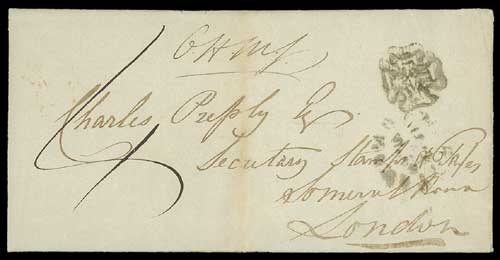 O.H.M.S.
Charles Pressly Esq
Secretary Stamps &
Somerset House
London